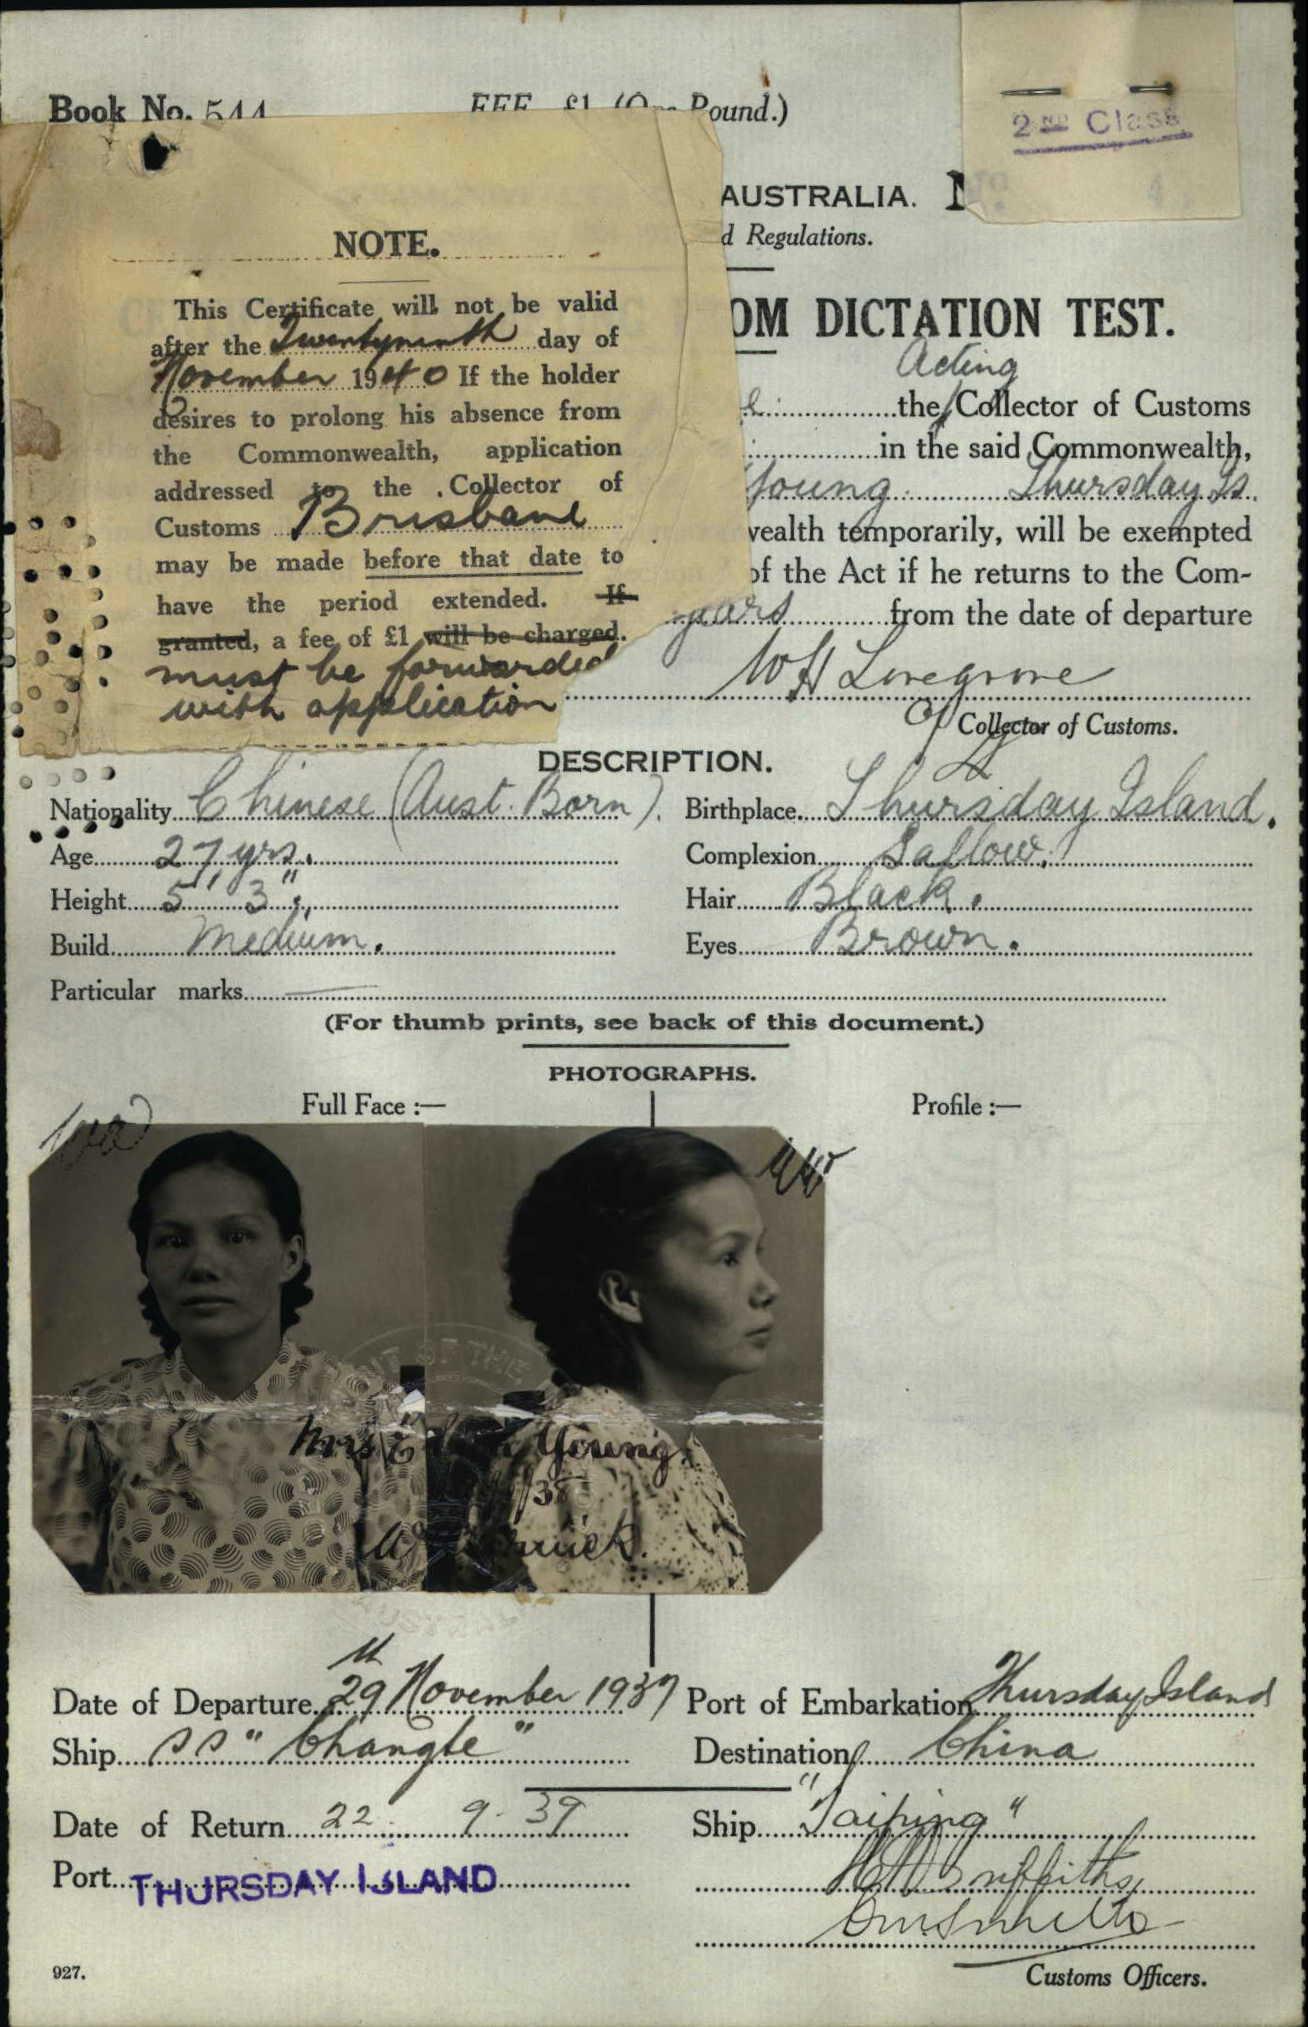 Book No. 544
FEE £1 (One Pound.)
2ND Class
AUSTRALIA.
d Regulations.
OM DICTATION TEST.
Acting
the Collector of Customs
in the said Commonwealth,
Young Thursday Is.
wealth temporarily, will be exempted
of the Act if he returns to the Com-
years from the date of departure
Collector of Customs.
NOTE.
This Certificate will not be valid
after the Twentyninth day of
November 1940 If the holder
desires to prolong his absence from
the Commonwealth, application
addressed to the Collector of
Customs Brisbane
may be made before that date to
have the period extended. If
granted, a fee of £1 will be charged.
must be forwarded
with application
DESCRIPTION.
Nationality Chinese (Aust. Born). Birthplace Thursday Island.
Age 27 yrs. Complexion Sallow.
Height 5' 3". Hair Black.
Build Medium. Eyes Brown.
Particular marks —
(For thumb prints, see back of this document.)
PHOTOGRAPHS.
Full Face :— Profile :—
Mrs Young
Date of Departure 29th November 1937 Port of Embarkation Thursday Island
Ship SS "Changte" Destination China
Date of Return 22 9 39 Ship "Taiping"
Port THURSDAY ISLAND
Griffiths
927.
Customs Officers.